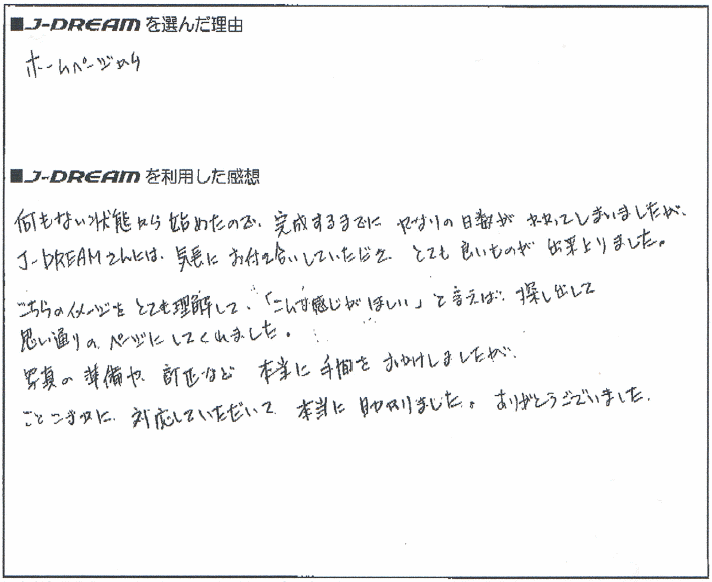 ■J-DREAMを選んだ理由
ホームページから
■J-DREAMを利用した感想
何もない状態から始めたので、完成するまでにかなりの日数がかかってしまいましたが、
J-DREAMさんには、気長にお付き合いしていただき、とても良いものが出来上りました。
こちらのイメージをとても理解して、「こんな感じがほしい」と言えば、探し出して
思い通りのページにしてくれました。
写真の準備や、訂正など本当に手間をおかけしましたが、
ことこまかに対応していただいて、本当に助かりました。ありがとうございました。